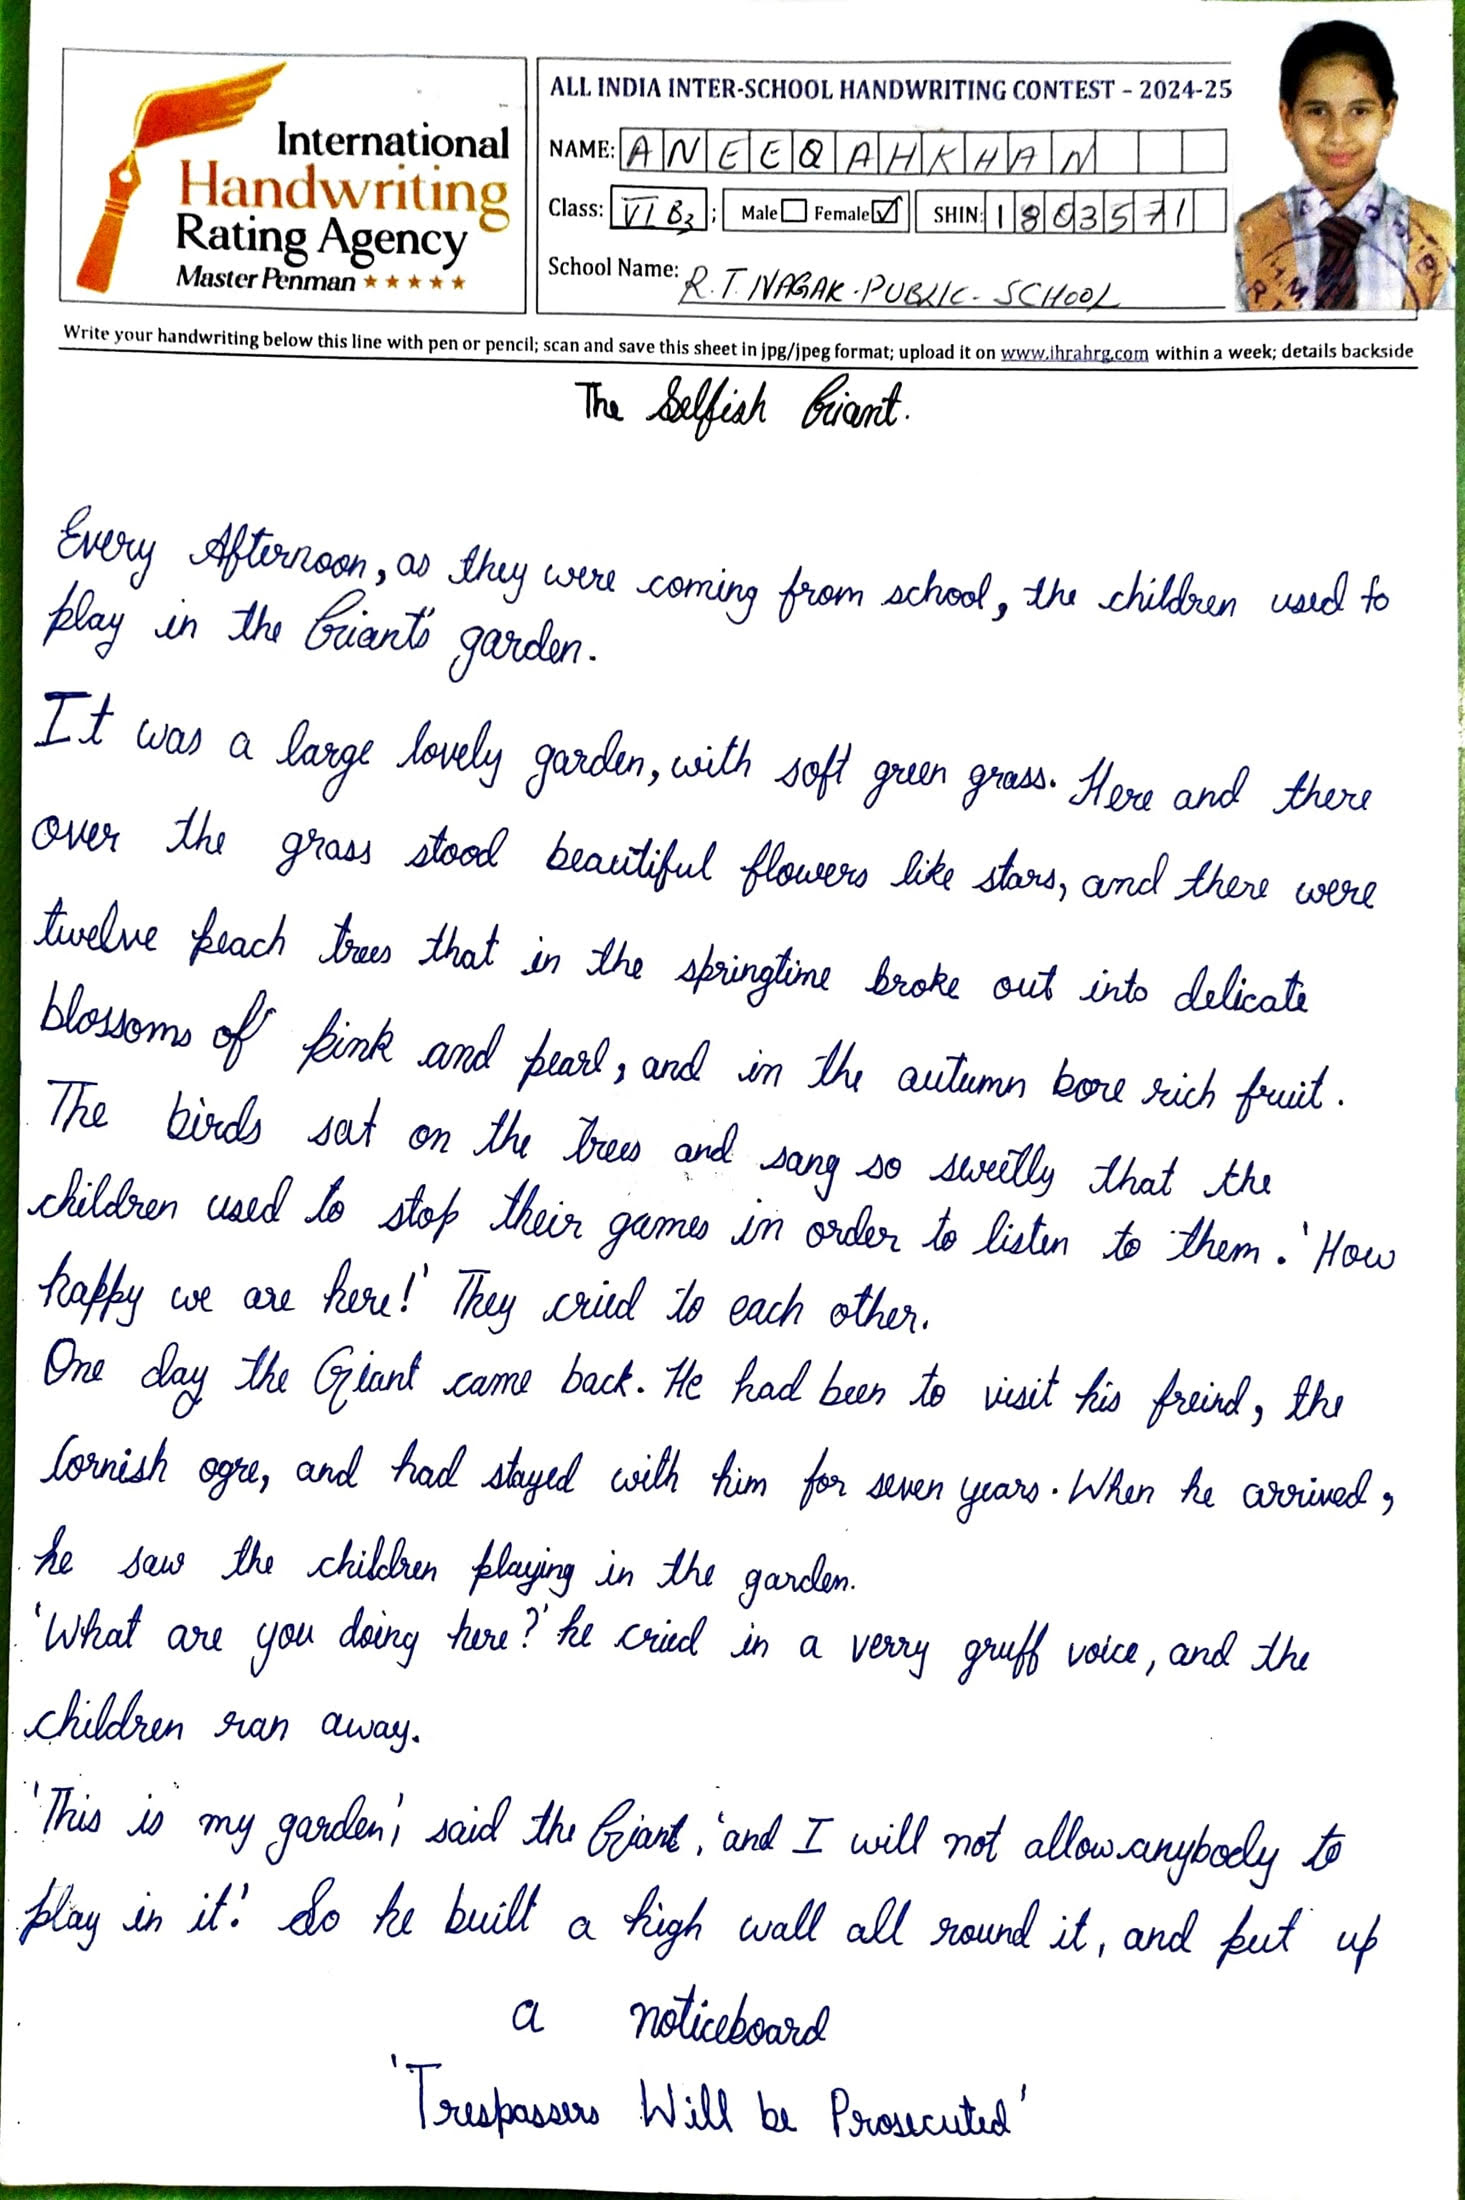 International
Handwriting
Rating Agency
Master Penman ★★★★★
ALL INDIA INTER-SCHOOL HANDWRITING CONTEST – 2024-25
NAME: ANEEQAHKHAN
Class: VI B3 ; Male Female ✓ SHIN: 1803571
School Name: R.T. NAGAR. PUBLIC - SCHOOL
Write your handwriting below this line with pen or pencil; scan and save this sheet in jpg/jpeg format; upload it on www.ihrahrg.com within a week; details backside
The Selfish Giant.
Every Afternoon, as they were coming from school, the children used to
play in the Giant's garden.
It was a large lovely garden, with soft green grass. Here and there
over the grass stood beautiful flowers like stars, and there were
twelve peach trees that in the springtime broke out into delicate
blossoms of pink and pearl, and in the autumn bore rich fruit.
The birds sat on the trees and sang so sweetly that the
children used to stop their games in order to listen to them. 'How
happy we are here!' They cried to each other.
One day the Giant came back. He had been to visit his freind, the
Cornish ogre, and had stayed with him for seven years. When he arrived,
he saw the children playing in the garden.
'What are you doing here?' he cried in a verry gruff voice, and the
children ran away.
'This is my garden', said the Giant, 'and I will not allow anybody to
play in it.' So he built a high wall all round it, and put up
a noticeboard
'Trespassers Will be Prosecuted'